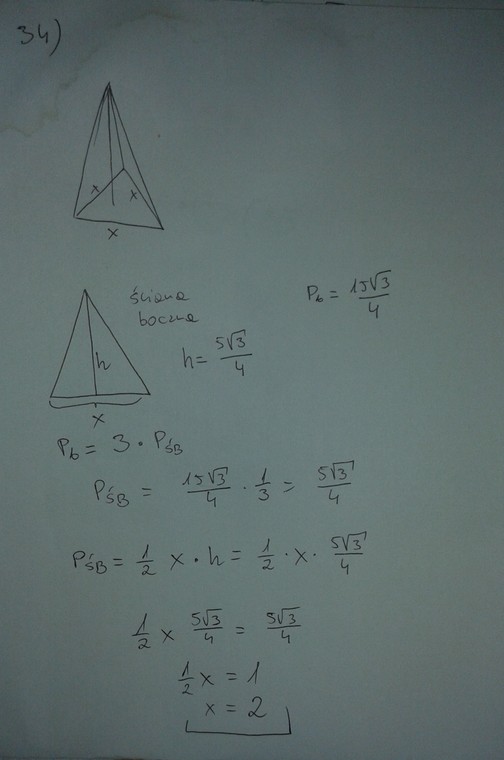 34)
x x
x
ściana
boczna
P_b = 15√3/4
h
h = 5√3/4
x
P_b = 3 · P_ŚB
P_ŚB = 15√3/4 · 1/3 = 5√3/4
P_ŚB = 1/2 x · h = 1/2 · x · 5√3/4
1/2 x 5√3/4 = 5√3/4
1/2 x = 1
x = 2